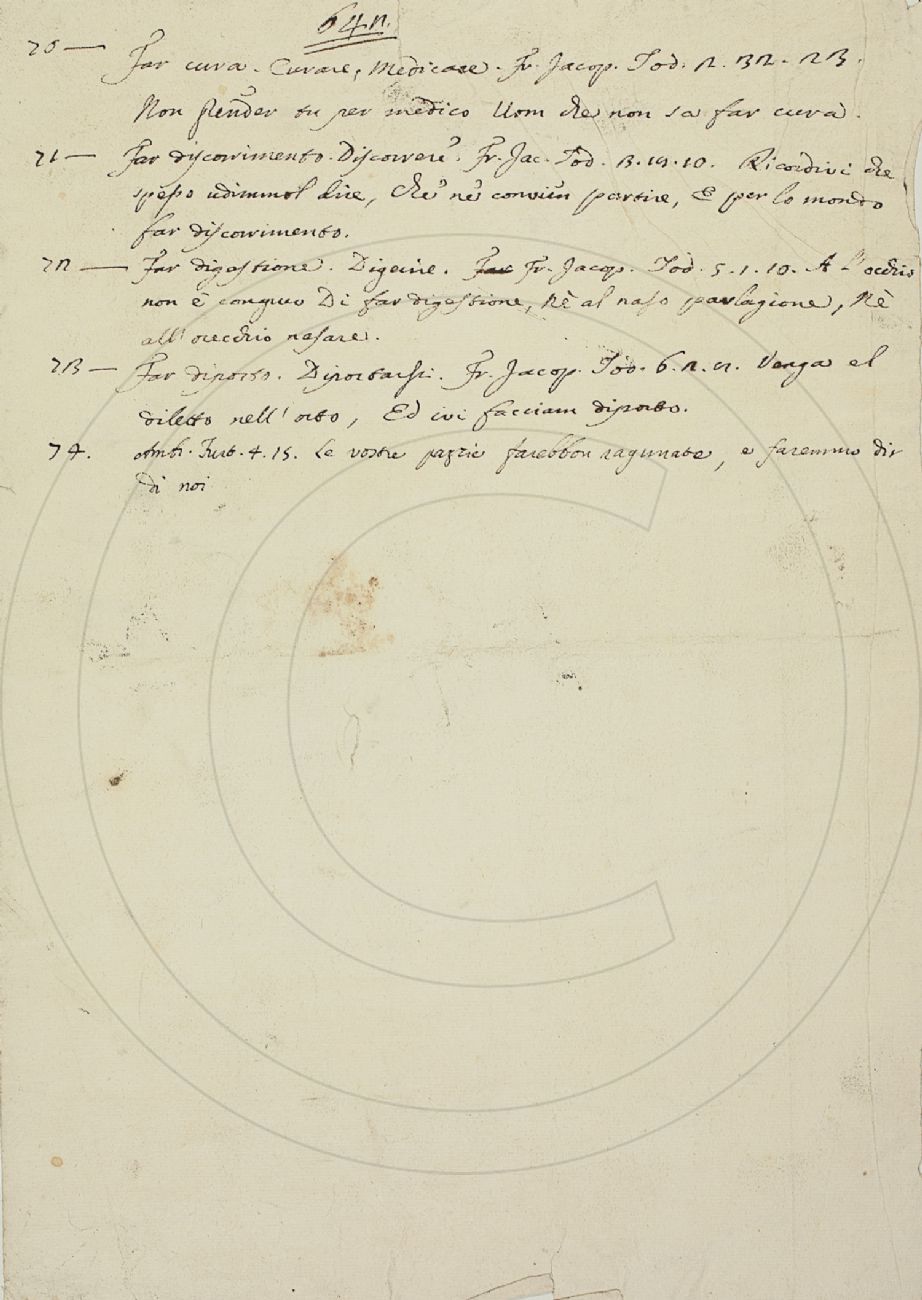 642.
70 — Far cura. Curare, Medicare. Fr. Jacop. Tod. 2. 32. 23.
Non prender tu per medico Uom che non sa far cura.
71 — Far discorrimento. Discorrere. Fr. Jac. Tod. 3. 19. 10. Ricordivi che
spesso udimmol dire, Che ne convien partire, E per lo mondo
far discorrimento.
72 — Far digestione. Digerire. Far Fr. Jacop. Tod. 5. 1. 10. A l'occhio
non è congruo Di far digestione, Nè al naso parlagione, Nè
all'orecchio nasare.
73 — Far diporto. Diportarsi. Fr. Jacop. Tod. 6. 2. Venga el
diletto nell'orto, Ed ivi facciam diporto.
74. Ambr. Furt. 4. 15. Le vostre pazzie sarebbon ragunate, e faremmo dir
di noi